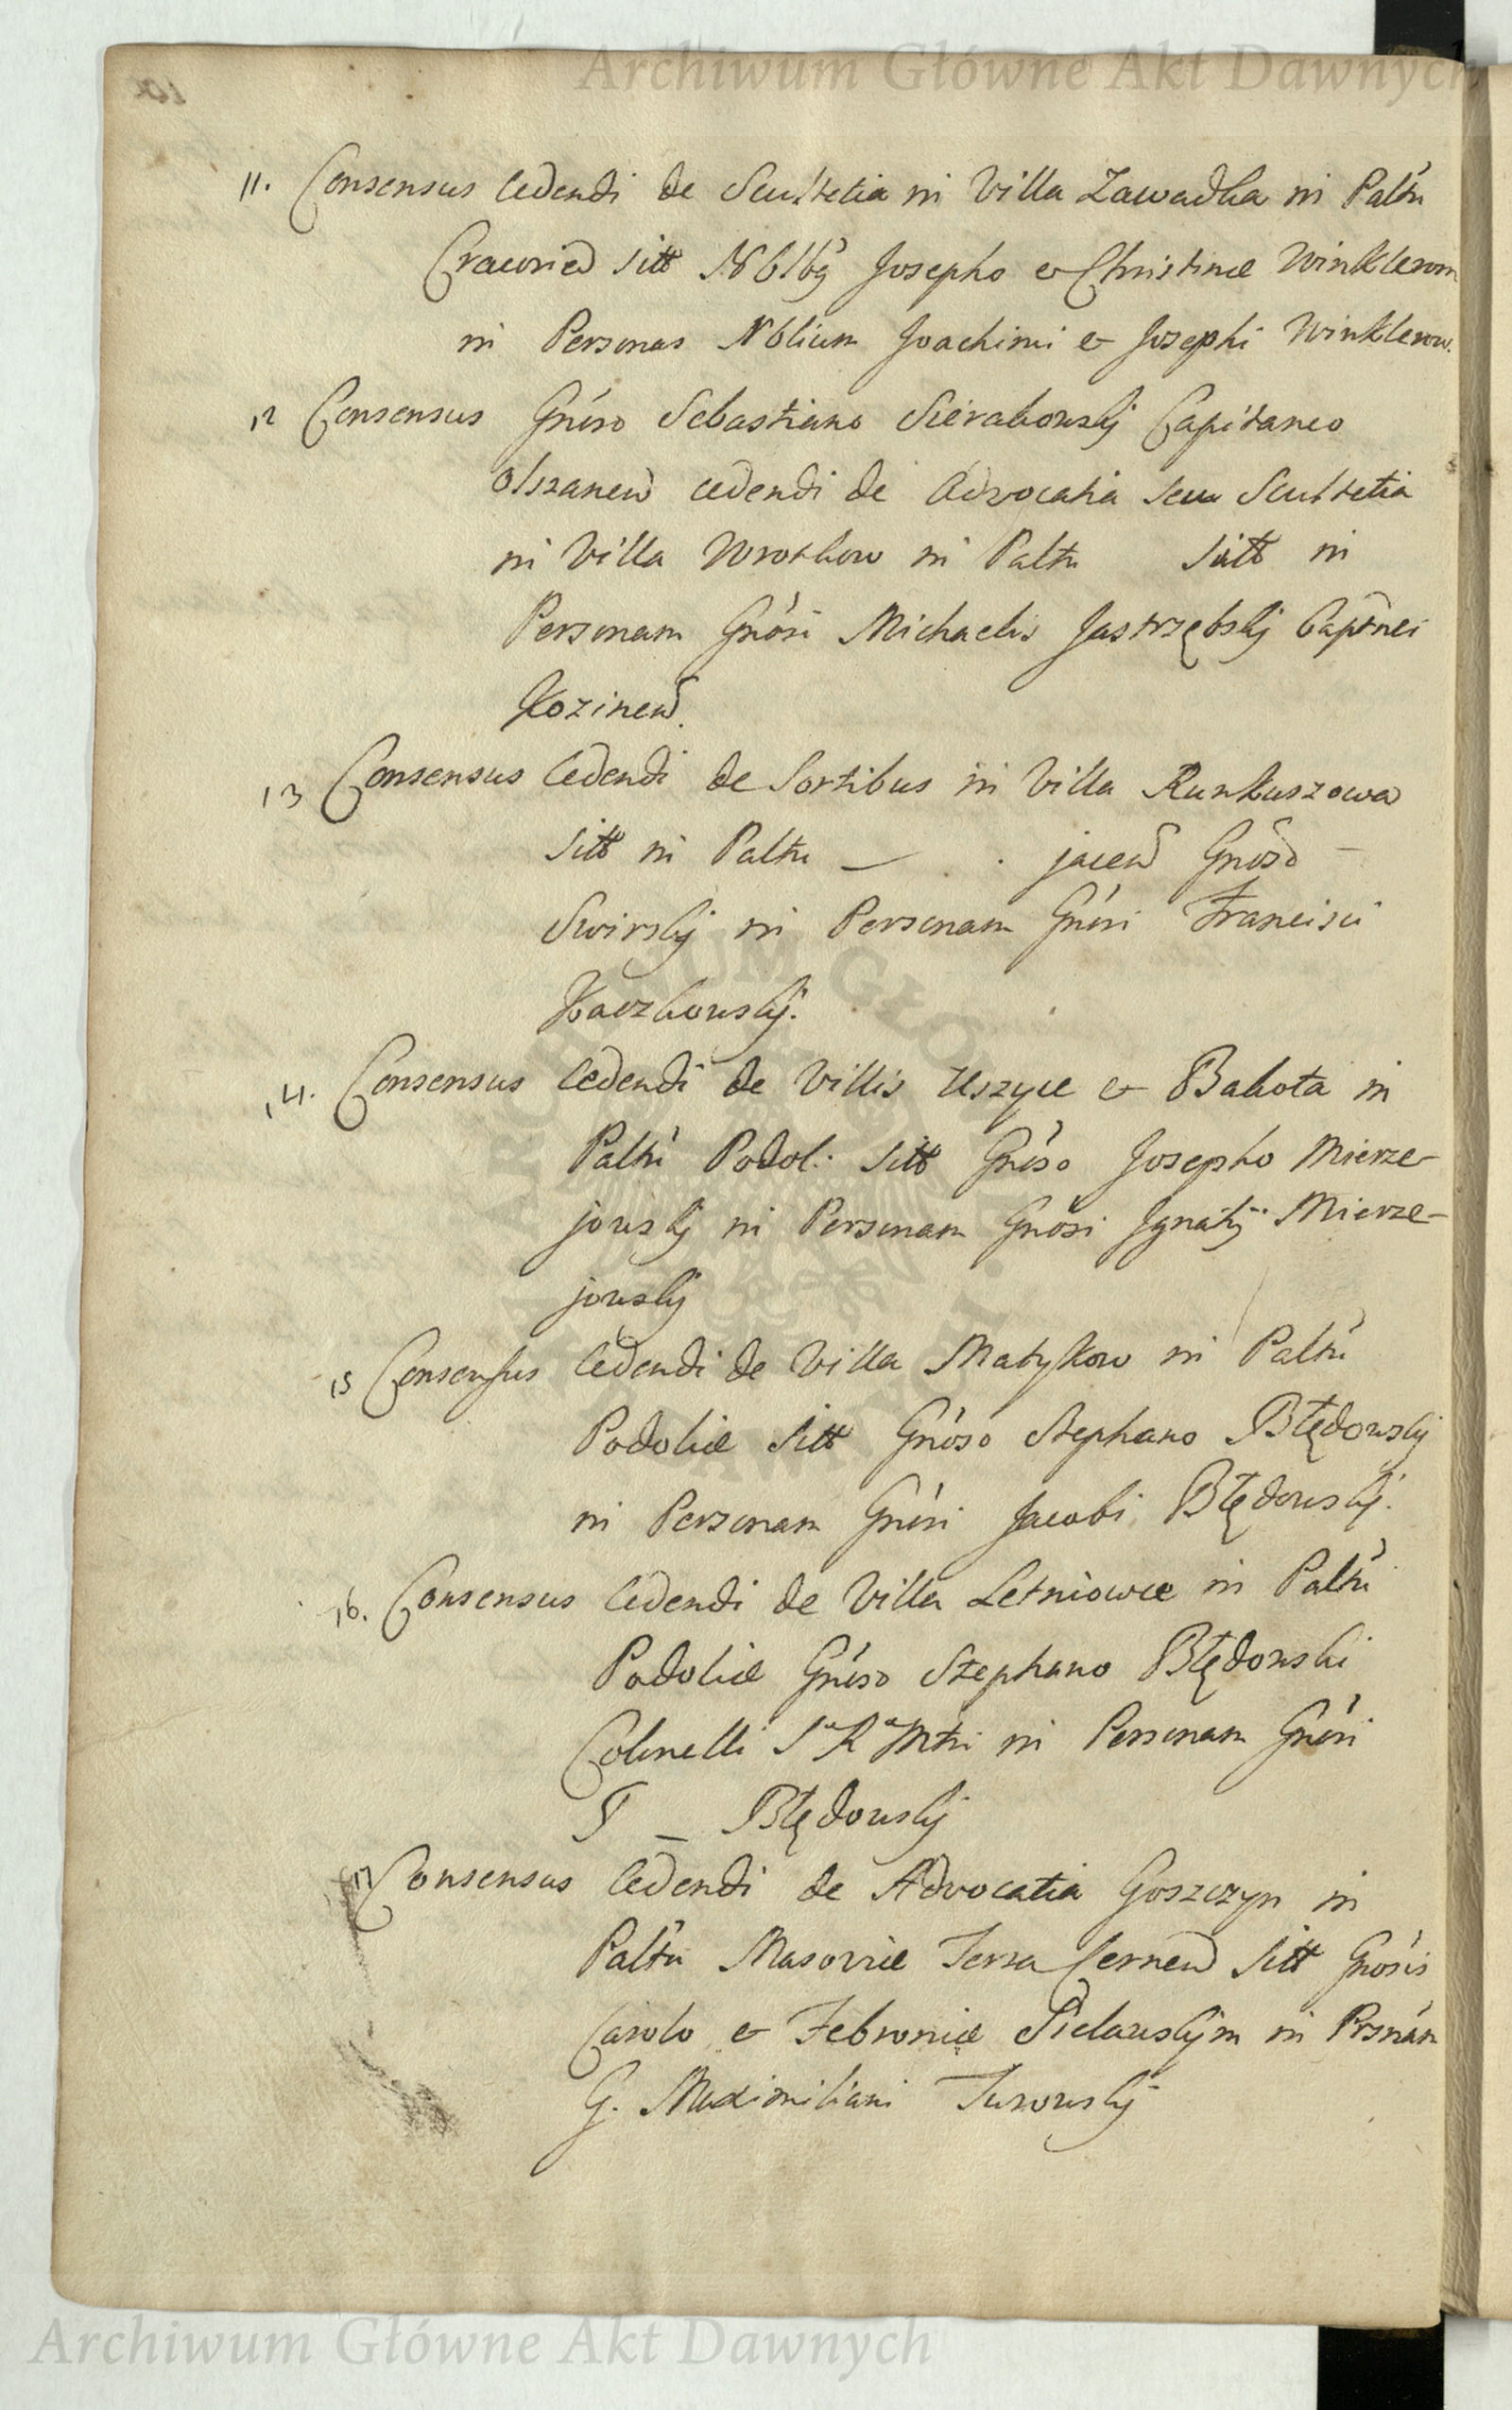 Archiwum Główne Akt Dawnych
11. Consensus Cedendi de Scultetia in Villa Zawadka in Paltu
Cracovien sitt Nblbg Josepho et Christinæ Winklerom
in Personas Nblium Joachimi et Josephi Winklerow.
12 Consensus Gnéso Sebastiano Sierakowskj Capitaneo
Olszanen cedendi de Advocatia seu Scultetia
in Villa Wrotkow in Paltu sitt in
Personam Gnósi Michaelis Jastrzębskj Captnei
Kozinen.
13 Consensus Cedendi de Sortibus in Villa Runkuszowa
sitt in Paltu — jacen Gnóso —
Swirskj in Personam Gnósi Francisci
Kaczkowskj.
14. Consensus Cedendi de Villis Uszyce et Bakota in
Paltu Podol: sitt Gnóso Josepho Mierze-
jowskj in Personam Gnósi Jgnatij Mierze-
jowskj
15 Consensus Cedendi de Villa Matykow in Paltu
Podoliæ sitt Gnóso Stephano Błędowskj
in Personam Gnósi Jacobi Błędowskj.
16. Consensus Cedendi de Villa Letniowce in Paltu
Podoliæ Gnóso Stephano Błędowski
Colonelli S R Mtti in Personam Gnósi
T — Błędowskj
17 Consensus Cedendi de Advocatia Goszczyn in
Paltu Masoviæ Terra Cernen sitt Gnósis
Carolo et Febroniæ Sielawskjm in Prsnam
G. Maximiliani Turowskj
Archiwum Główne Akt Dawnych